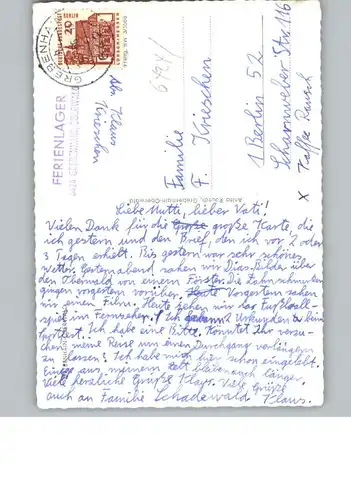 GREBENHAIN
DEUTSCHE BUNDESPOST
BERLIN
20
LORSCH HESSEN
FERIENLAGER
Abs. Klaus
Krieschen
Familie
F. Krieschen
1 Berlin 52
Scharnweber Str. 116
Kaffee Rausch
X
Liebe Mutti, lieber Vati!
Vielen Dank für die große Karte, die
ich gestern und den Brief, den ich vor 2 oder
3 Tagen erhielt. Bis gestern war sehr schönes
Wetter. Gestern abend sahen wir Dias-Bilder über
den Oberwald von einem Förster. Die Zahnschmerzen
gingen vorgestern vorüber. Vorgestern sahen
wir einen Film. Heute sehen wir das Fußball-
spiel im Fernseher. Ich 2 Urkunden
Ich habe eine Bitte. Könntet Ihr versu-
chen, meine Reise um einen Durchgang verlängern
zu lassen! Ich habe mich hier schon eingelebt.
Einige aus meinem Zelt bleiben auch länger.
Viele herzliche Grüße Klaus. Viele Grüße
auch an Familie Schadewald Klaus.